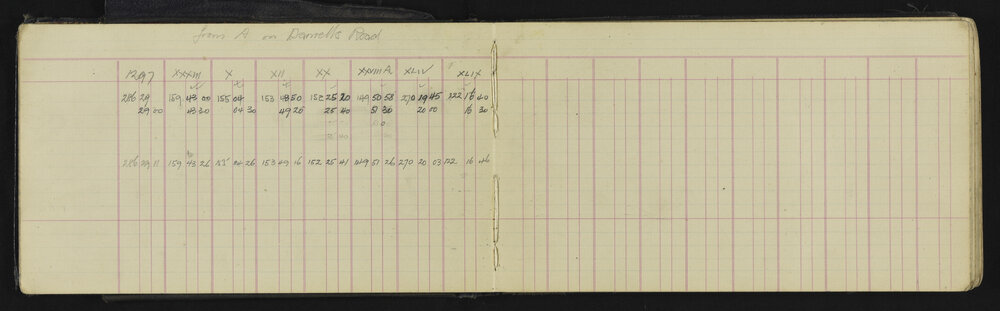 from A on Darnells Road
1297 XXXIII X XII XX XXVIII A XLIV XLIX
286 29 159 43 00 155 04 153 49 50 152 25 20 149 50 58 270 19 45 222 16 40
29 00 43 30 04 30 49 20 25 40 51 30 20 00 16 30
286 29 11 159 43 26 155 04 26 153 49 16 152 25 41 149 51 26 270 20 03 122 16 46